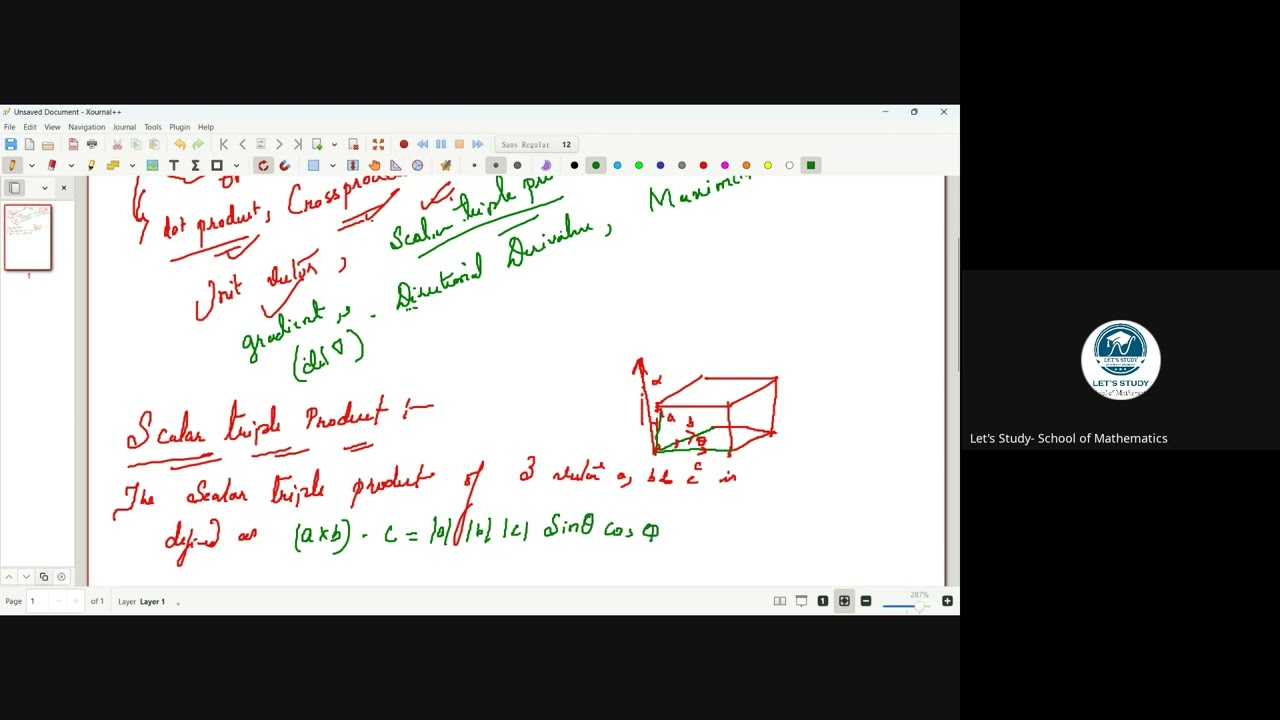 Unsaved Document - Xournal++
File Edit View Navigation Journal Tools Plugin Help
Sans Regular 12
dot product, Crossprodu
Scalar triple pro
Maximu
Unit vector,
gradient, Directional Derivative,
(del ∇)
Scalar triple Product :-
a
b
θ
The Scalar triple product of 3 vectors a, b & c is
defined as (a×b) · c = |a| |b| |c| Sinθ cos φ
1
Page 1 of 1 Layer Layer 1
287%
LET'S STUDY
Let's Study- School of Mathematics